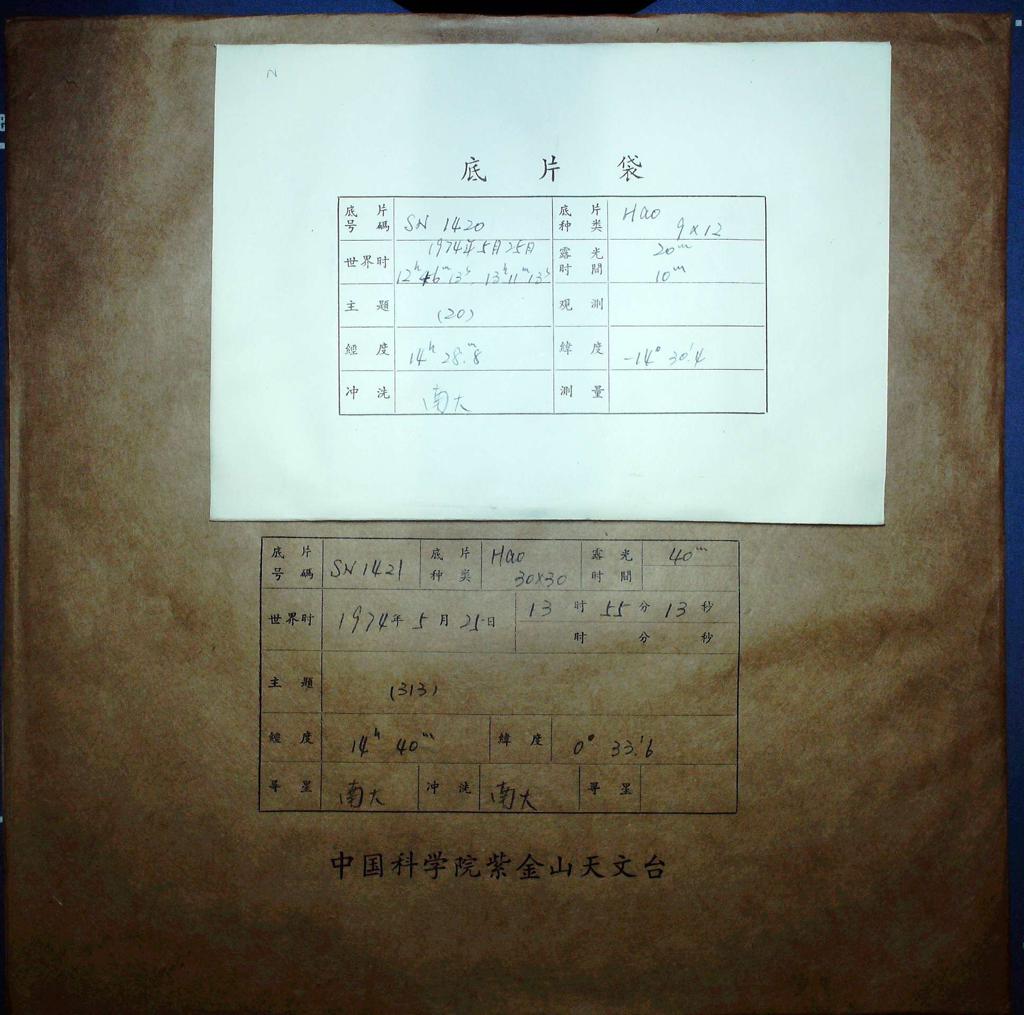 N
底片袋
底片号碼 SN 1420 底片种类 Hao 9×12
世界时 1974年5月25日 12ʰ46ᵐ13ˢ 13ʰ11ᵐ13ˢ 露光时間 20ᵐ 10ᵐ
主題 (20) 观測
經度 14ʰ 28.ᵐ8 緯度 -14° 30.′4
冲洗 南大 測量
底片号碼 SN 1421 底片种类 Hao 30×30 露光时間 40ᵐ
世界时 1974年5月25日 13时55分13秒
时 分 秒
主題 (313)
經度 14ʰ 40ᵐ 緯度 0° 33.′6
寻星 南大 冲洗 南大 寻星
中国科学院紫金山天文台